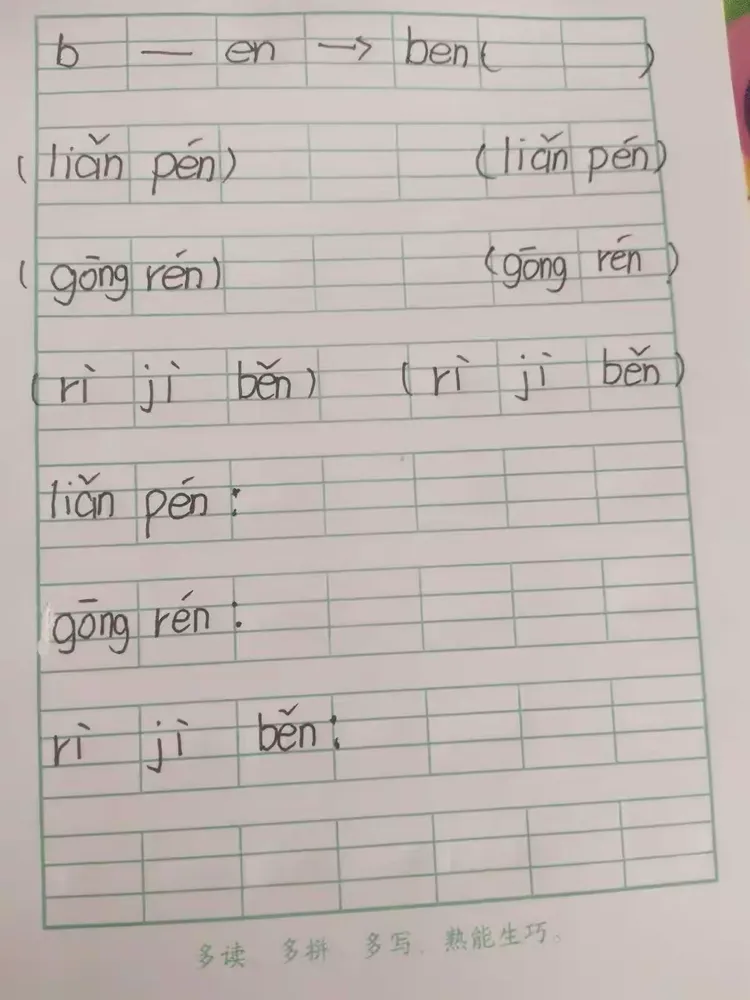 b — en → ben( )
(liǎn pén) (liǎn pén)
(gōng rén) (gōng rén)
(rì jì běn) (rì jì běn)
liǎn pén:
gōng rén:
rì jì běn:
多读 多拼 多写，熟能生巧。